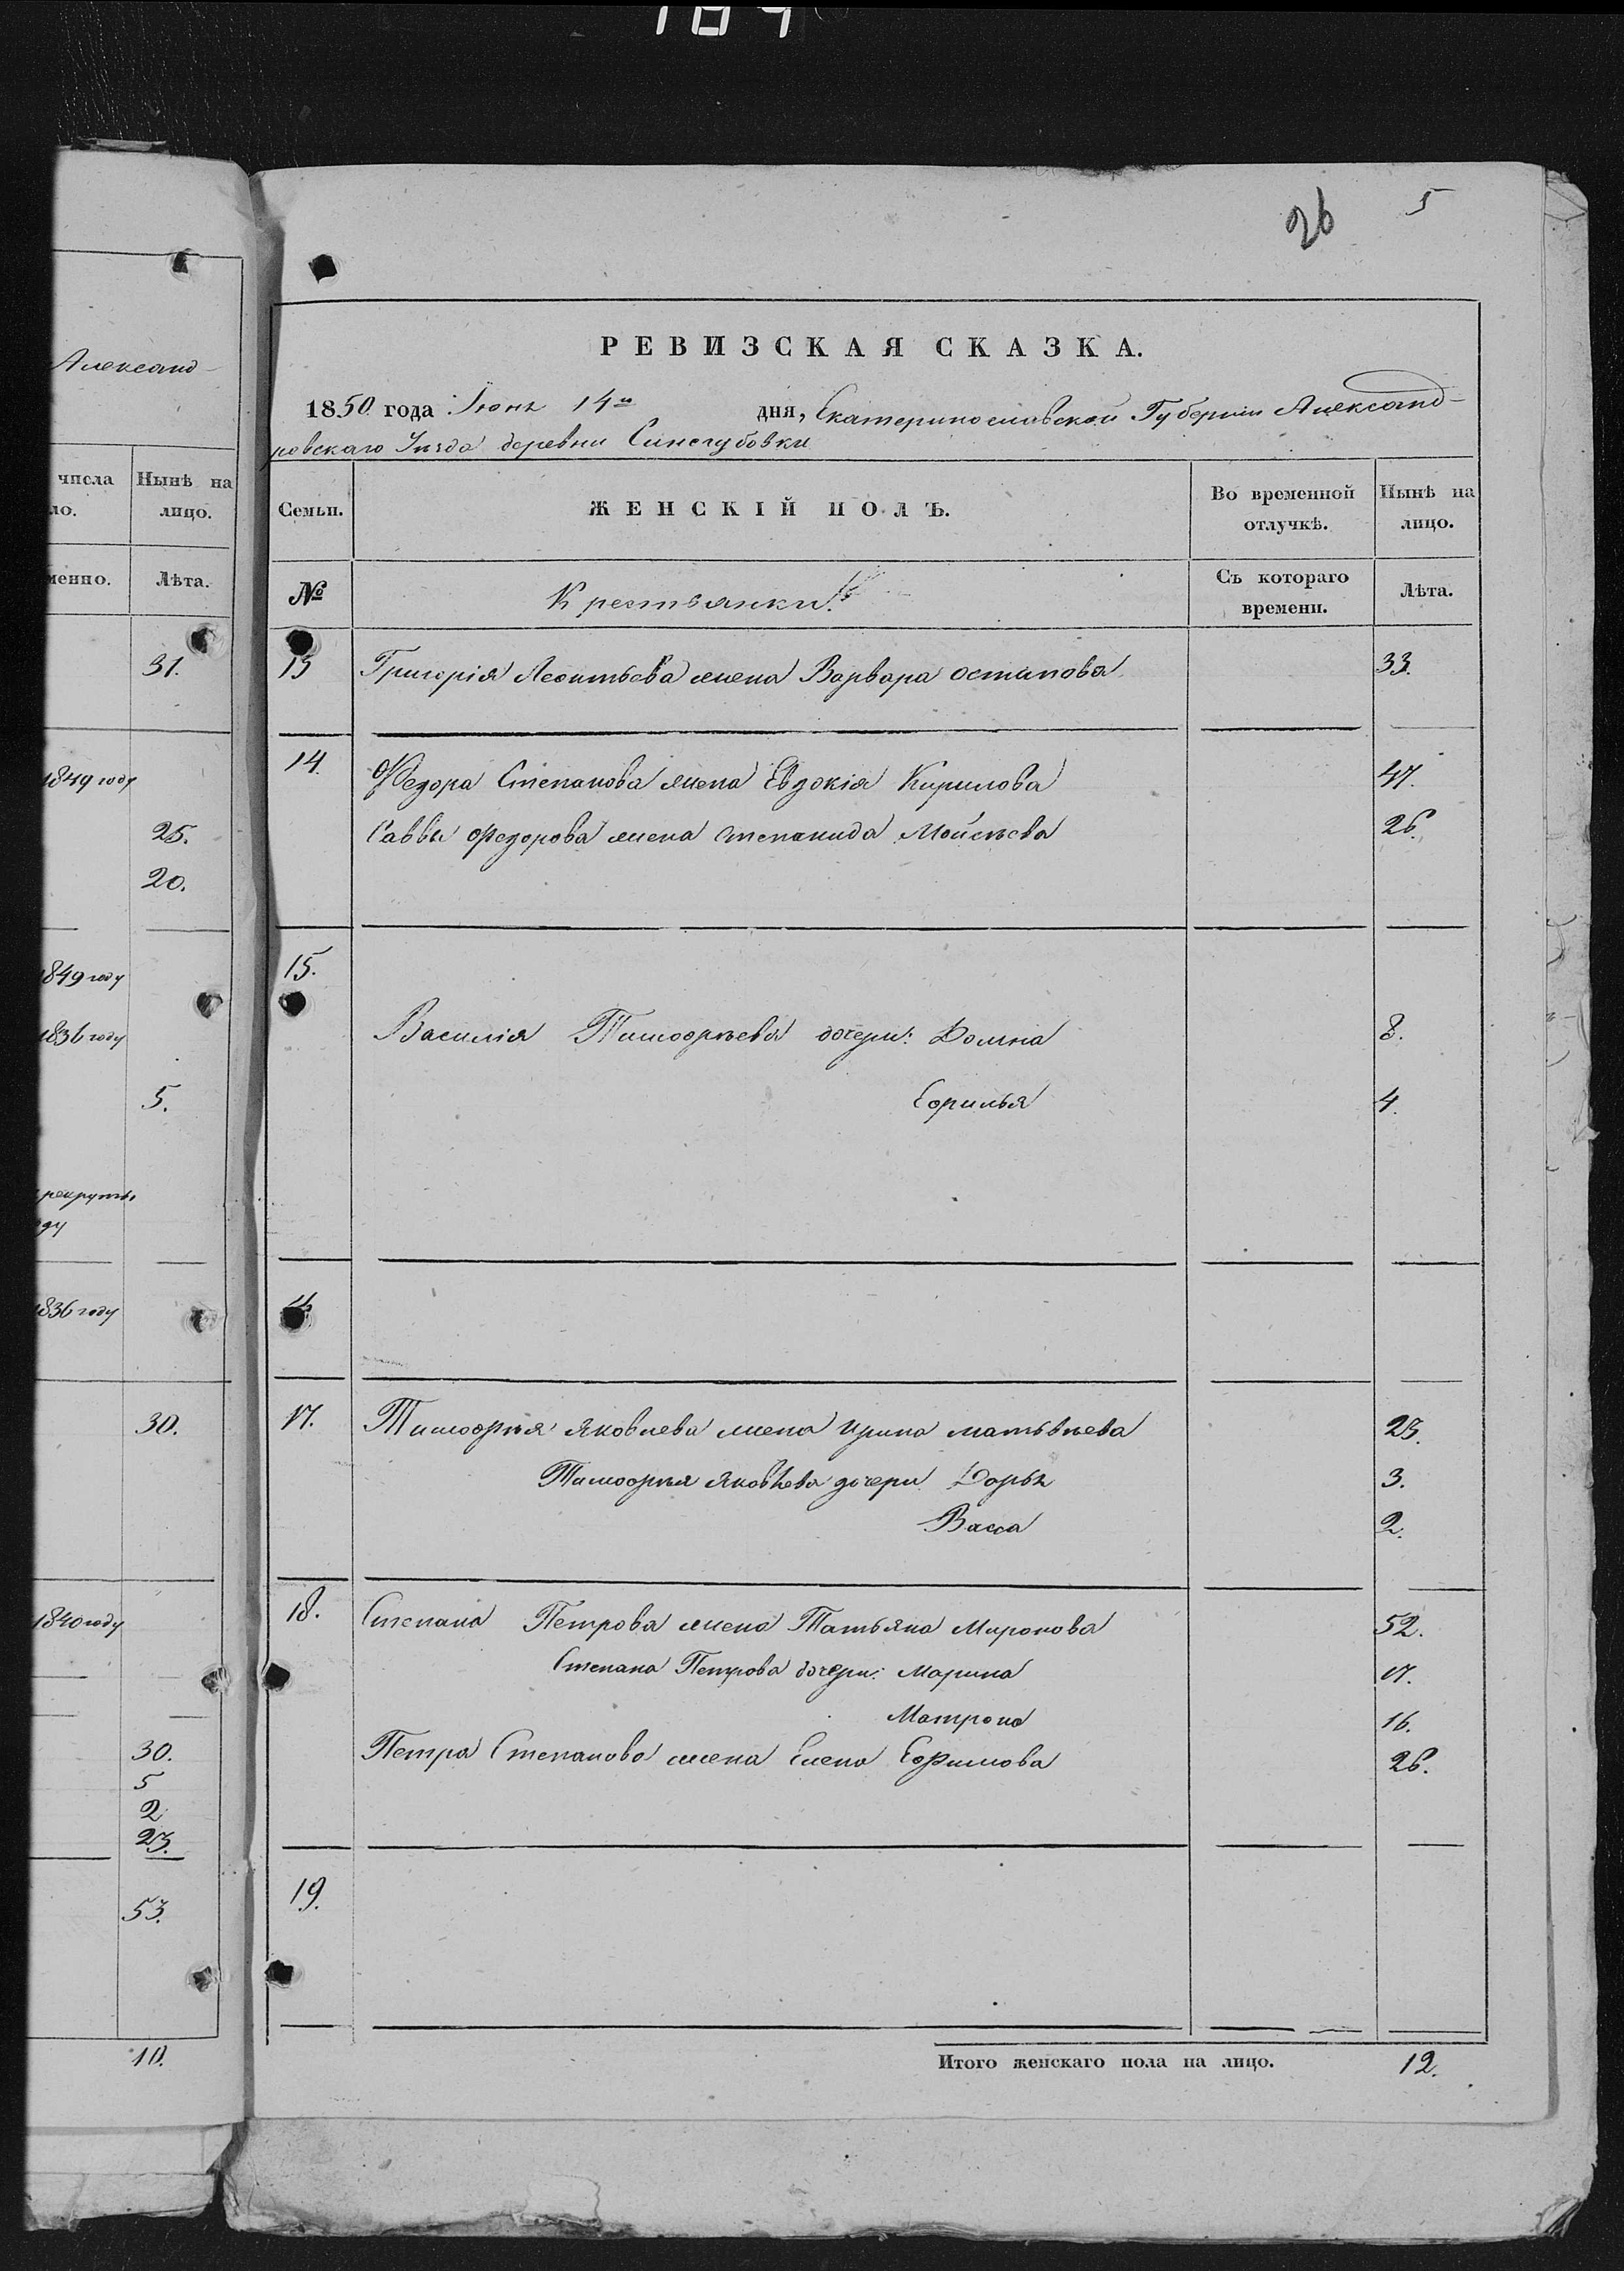 184
Александ-
числа Нынѣ на
ло. лицо.
менно. Лѣта.
31.
1849 году
25.
20.
1849 году
1836 году
5.
рекруты
ду
1836 году
30.
1840 году
30.
5
2
23.
53.
10.
26 5
РЕВИЗСКАЯ СКАЗКА.
1850 года Июня 14го дня, Екатеринославской Губернии Александ-
ровскаго Уезда деревни Синегубовки
Семьи. ЖЕНСКІЙ ПОЛЪ. Во временной отлучкѣ. Нынѣ на лицо.
№ Крестьянки. Съ котораго времени. Лѣта.
13 Григорія Леонтьева жена Варвара Остапова 33.
14. Федора Степанова жена Евдокія Кирилова 47.
Саввы Федорова жена Степанида Мойсѣева 26.
15.
Василія Тимофѣева дочери: Домна 8.
Ефимья 4.
17. Тимофѣя Яковлева жена Ирина Матьвѣева 23.
Тимофѣя Яковлева дочери Дарья 3.
Васса 2.
18. Степана Петрова жена Татьяна Миронова 52.
Степана Петрова дочери: Марина 17.
Матрона 16.
Петра Степанова жена Елена Ефимова 26.
19.
Итого женскаго пола на лицо. 12.